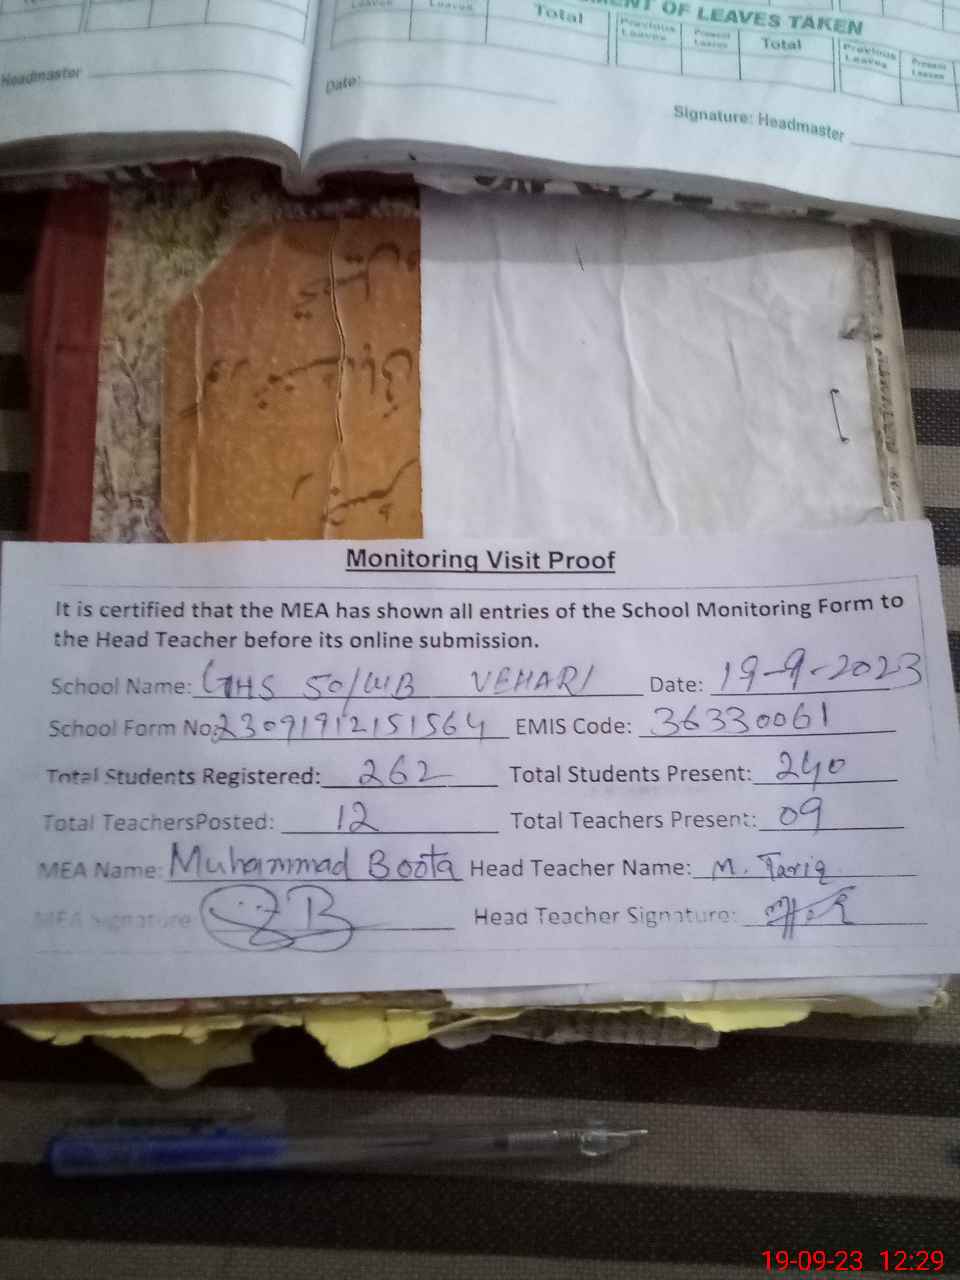 MENT OF LEAVES TAKEN
Leaves Leaves Total Previous Leaves Present Leaves Total Previous Leaves Present Leaves
Headmaster
Date:
Signature: Headmaster
Monitoring Visit Proof
It is certified that the MEA has shown all entries of the School Monitoring Form to
the Head Teacher before its online submission.
School Name: GHS 50/WB VEHARI Date: 19-9-2023
School Form No: 2309191215 1564 EMIS Code: 36330061
Total Students Registered: 262 Total Students Present: 240
Total TeachersPosted: 12 Total Teachers Present: 09
MEA Name: Muhammad Boota Head Teacher Name: M. Tariq
MEA Signature Head Teacher Signature:
19-09-23 12:29